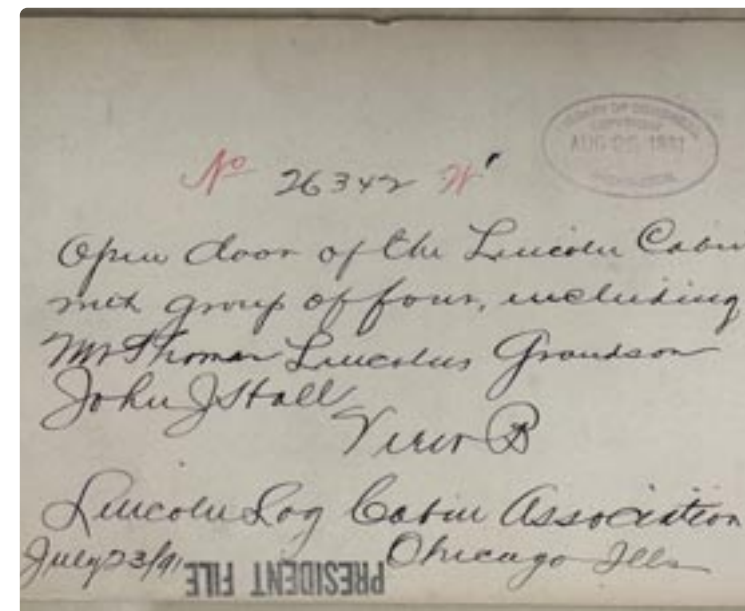 LIBRARY OF CONGRESS
COPYRIGHT
AUG 1891
No 26342 W'
Open door of the Lincoln Cabin
with group of four, including
Mr Thomas Lincolns Grandson
John J Hall
View B
Lincoln Log Cabin Association
July 23/91 Chicago Ills
PRESIDENT FILE